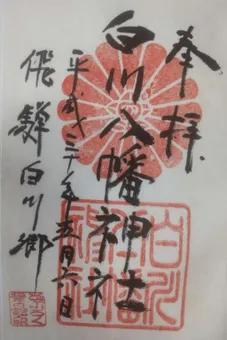 奉拝
白川八幡神社
平成三十年五月六日
飛騨白川郷